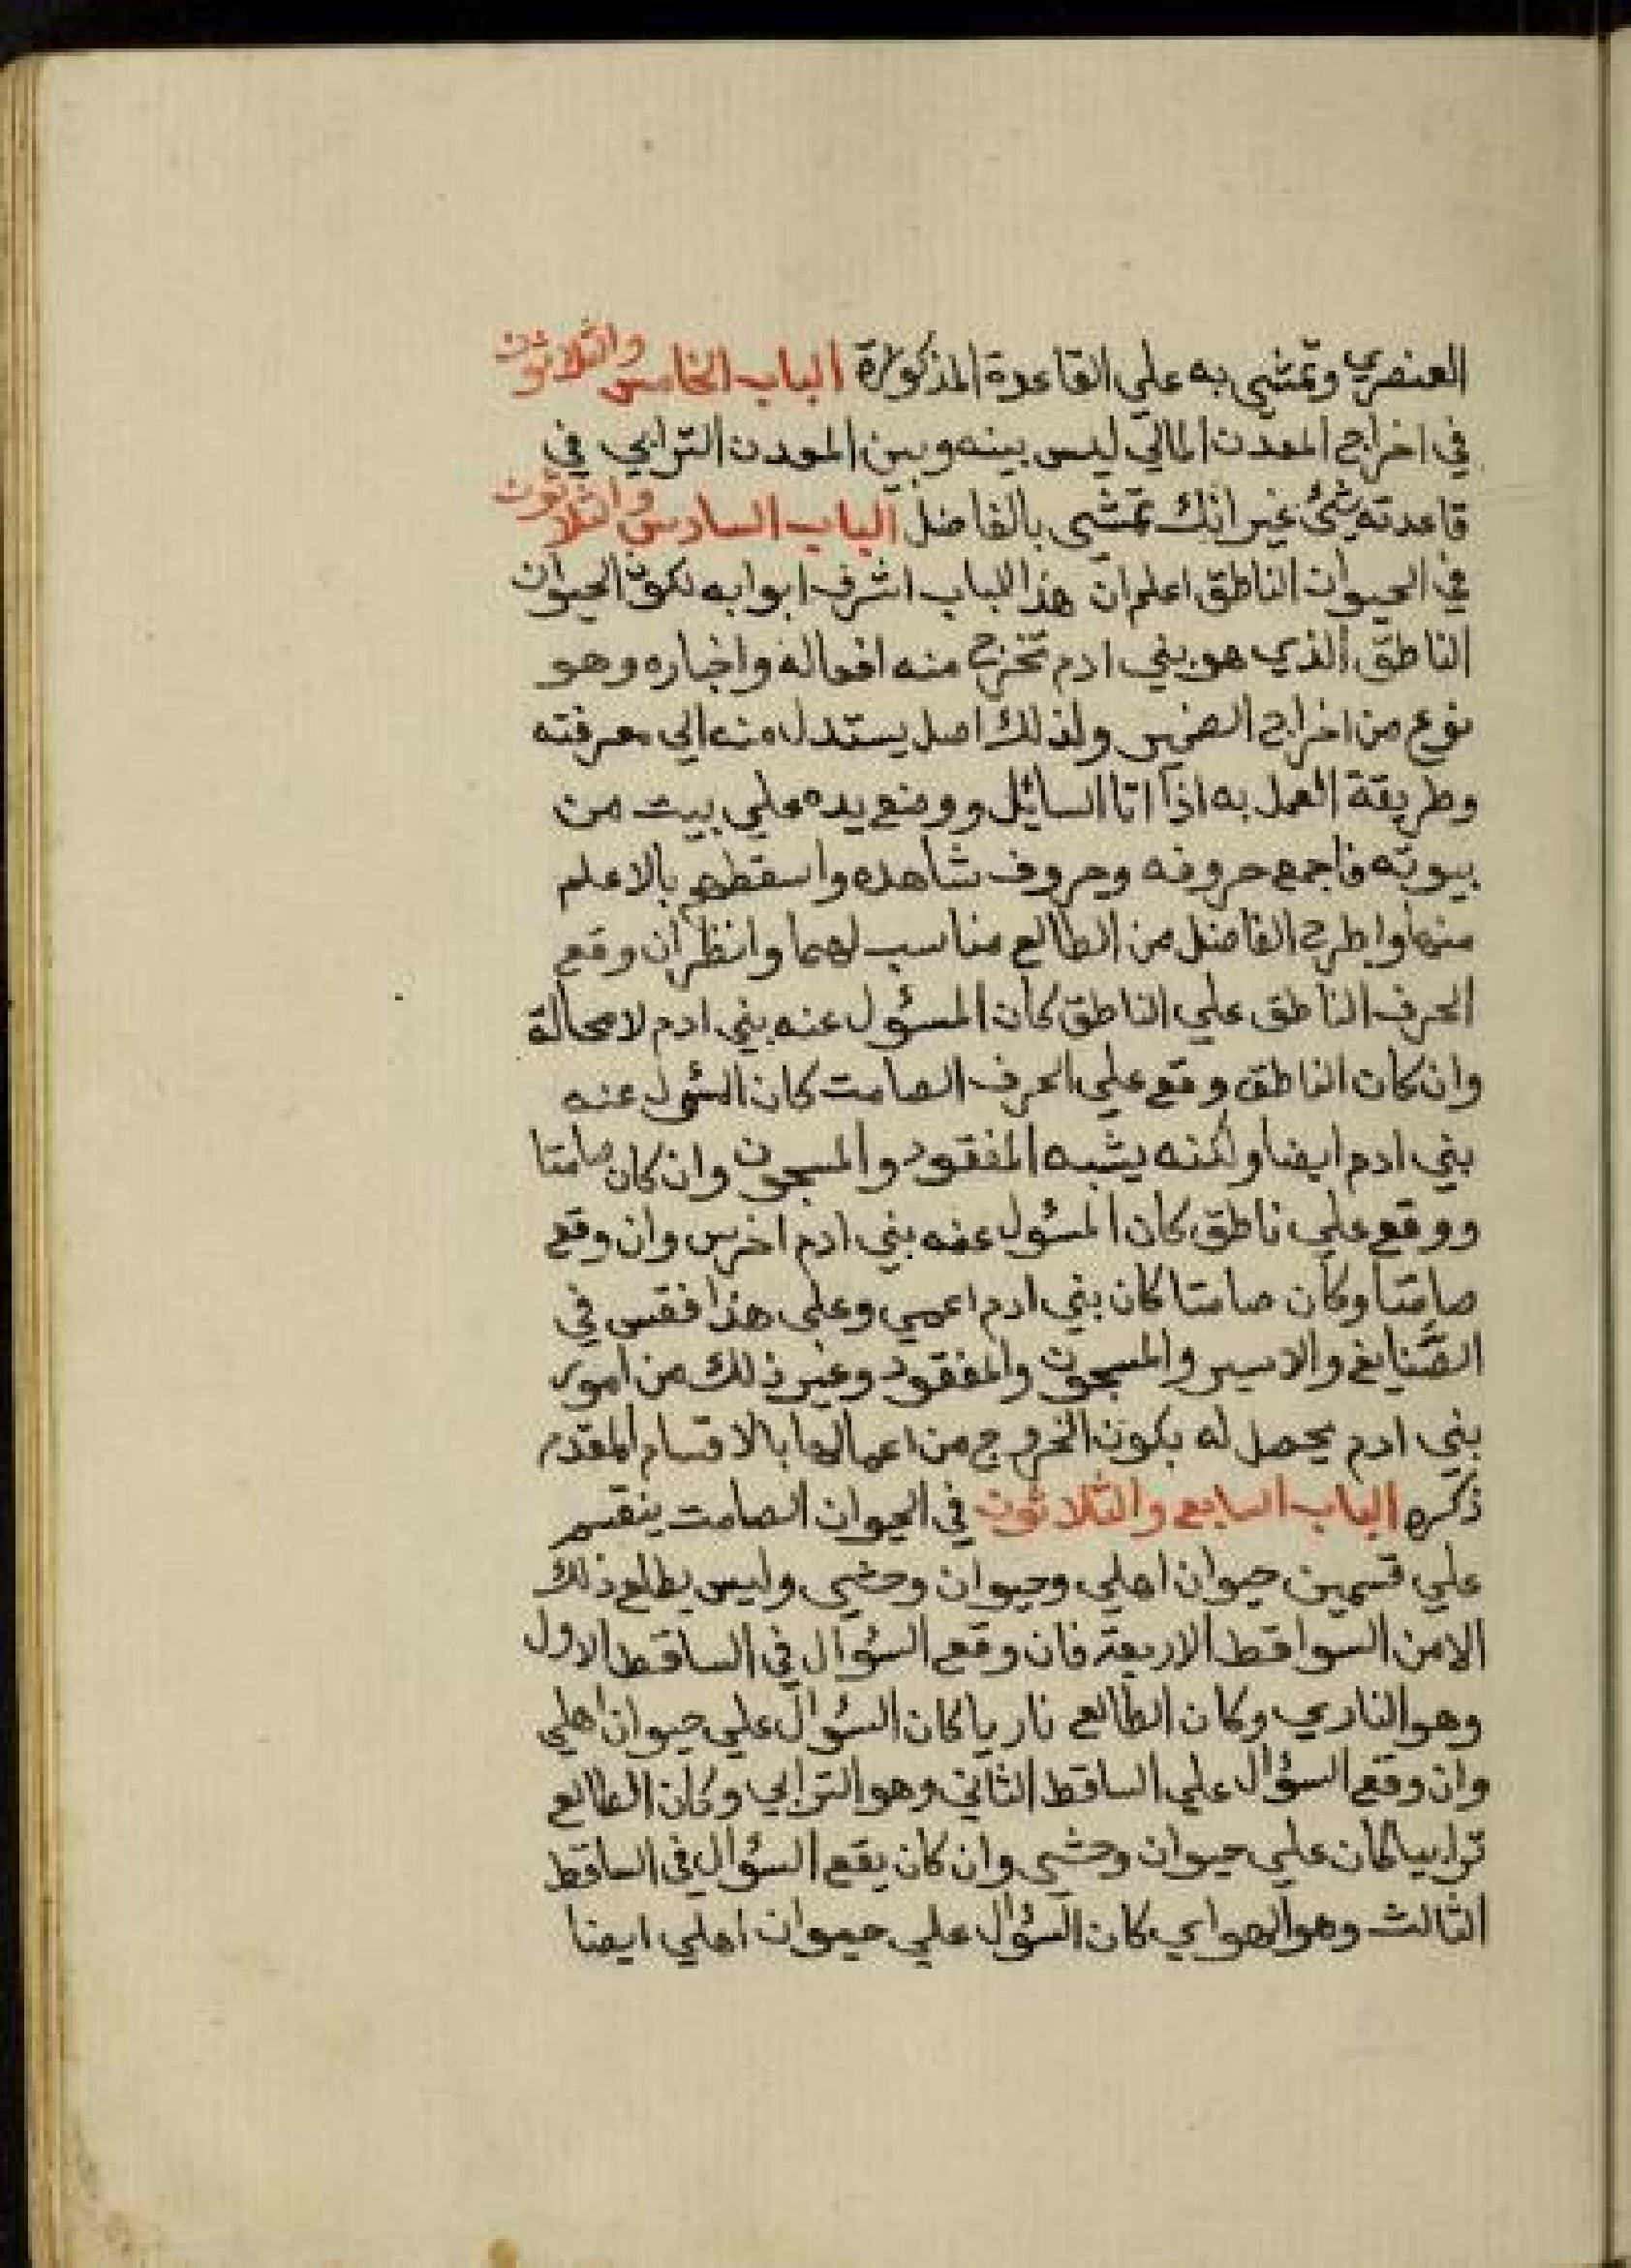 العنصري وتمشي به علي القاعدة المذكورة الباب الخامس والثلاثون
في اخراج المعدن المالي ليس بينه وبين المعدن الترابي في
قاعدته شئ غير انك تمشي بالفاضل الباب السادس والثلاثون
في الحيوان الناطق اعلم ان هذا الباب اشرف ابوابه لكون الحيوان
الناطق الذي هو بني ادم تخرج منه افعاله واخباره وهو
نوع من اخراج الضمير ولذلك اصل يستدل منه الي معرفته
وطريقة العمل به اذا اتا السائل ووضع يده علي بيت من
بيوته فاجمع حروفه وحروف شاهده واسقطهم بالاعلم
منها واطرح الفاضل من الطالع مناسب لهما وانظر ان وقع
الحرف الناطق علي الناطق كان المسؤل عنه بني ادم لا محالة
وان كان الناطق وقع علي الحرف الصامت كان المسؤل عنه
بني ادم ايضا ولكنه يشبه المفقود والمسجون وان كان صامتا
ووقع علي ناطق كان المسؤل عنه بني ادم اخرس وان وقع
صامتا وكان صامتا كان بني ادم اعمي وعلي هذا فقس في
الصنايع والاسير والمسجون والمفقود وغير ذلك من امور
بني ادم يحصل له بكون الخروج من اعمالها بالاقسام المقدم
ذكره الباب السابع والثلاثون في الحيوان الصامت ينقسم
علي قسمين حيوان اهلي وحيوان وحشي وليس يطلع ذلك
الا من السواقط الاربعة فان وقع السؤال في الساقط الاول
وهو الناري وكان الطالع ناريا كان السؤال علي حيوان اهلي
وان وقع السؤال علي الساقط الثاني وهو الترابي وكان الطالع
ترابيا كان علي حيوان وحشي وان كان يقع السؤال في الساقط
الثالث وهو الهوايي كان السؤال علي حيوان اهلي ايضا